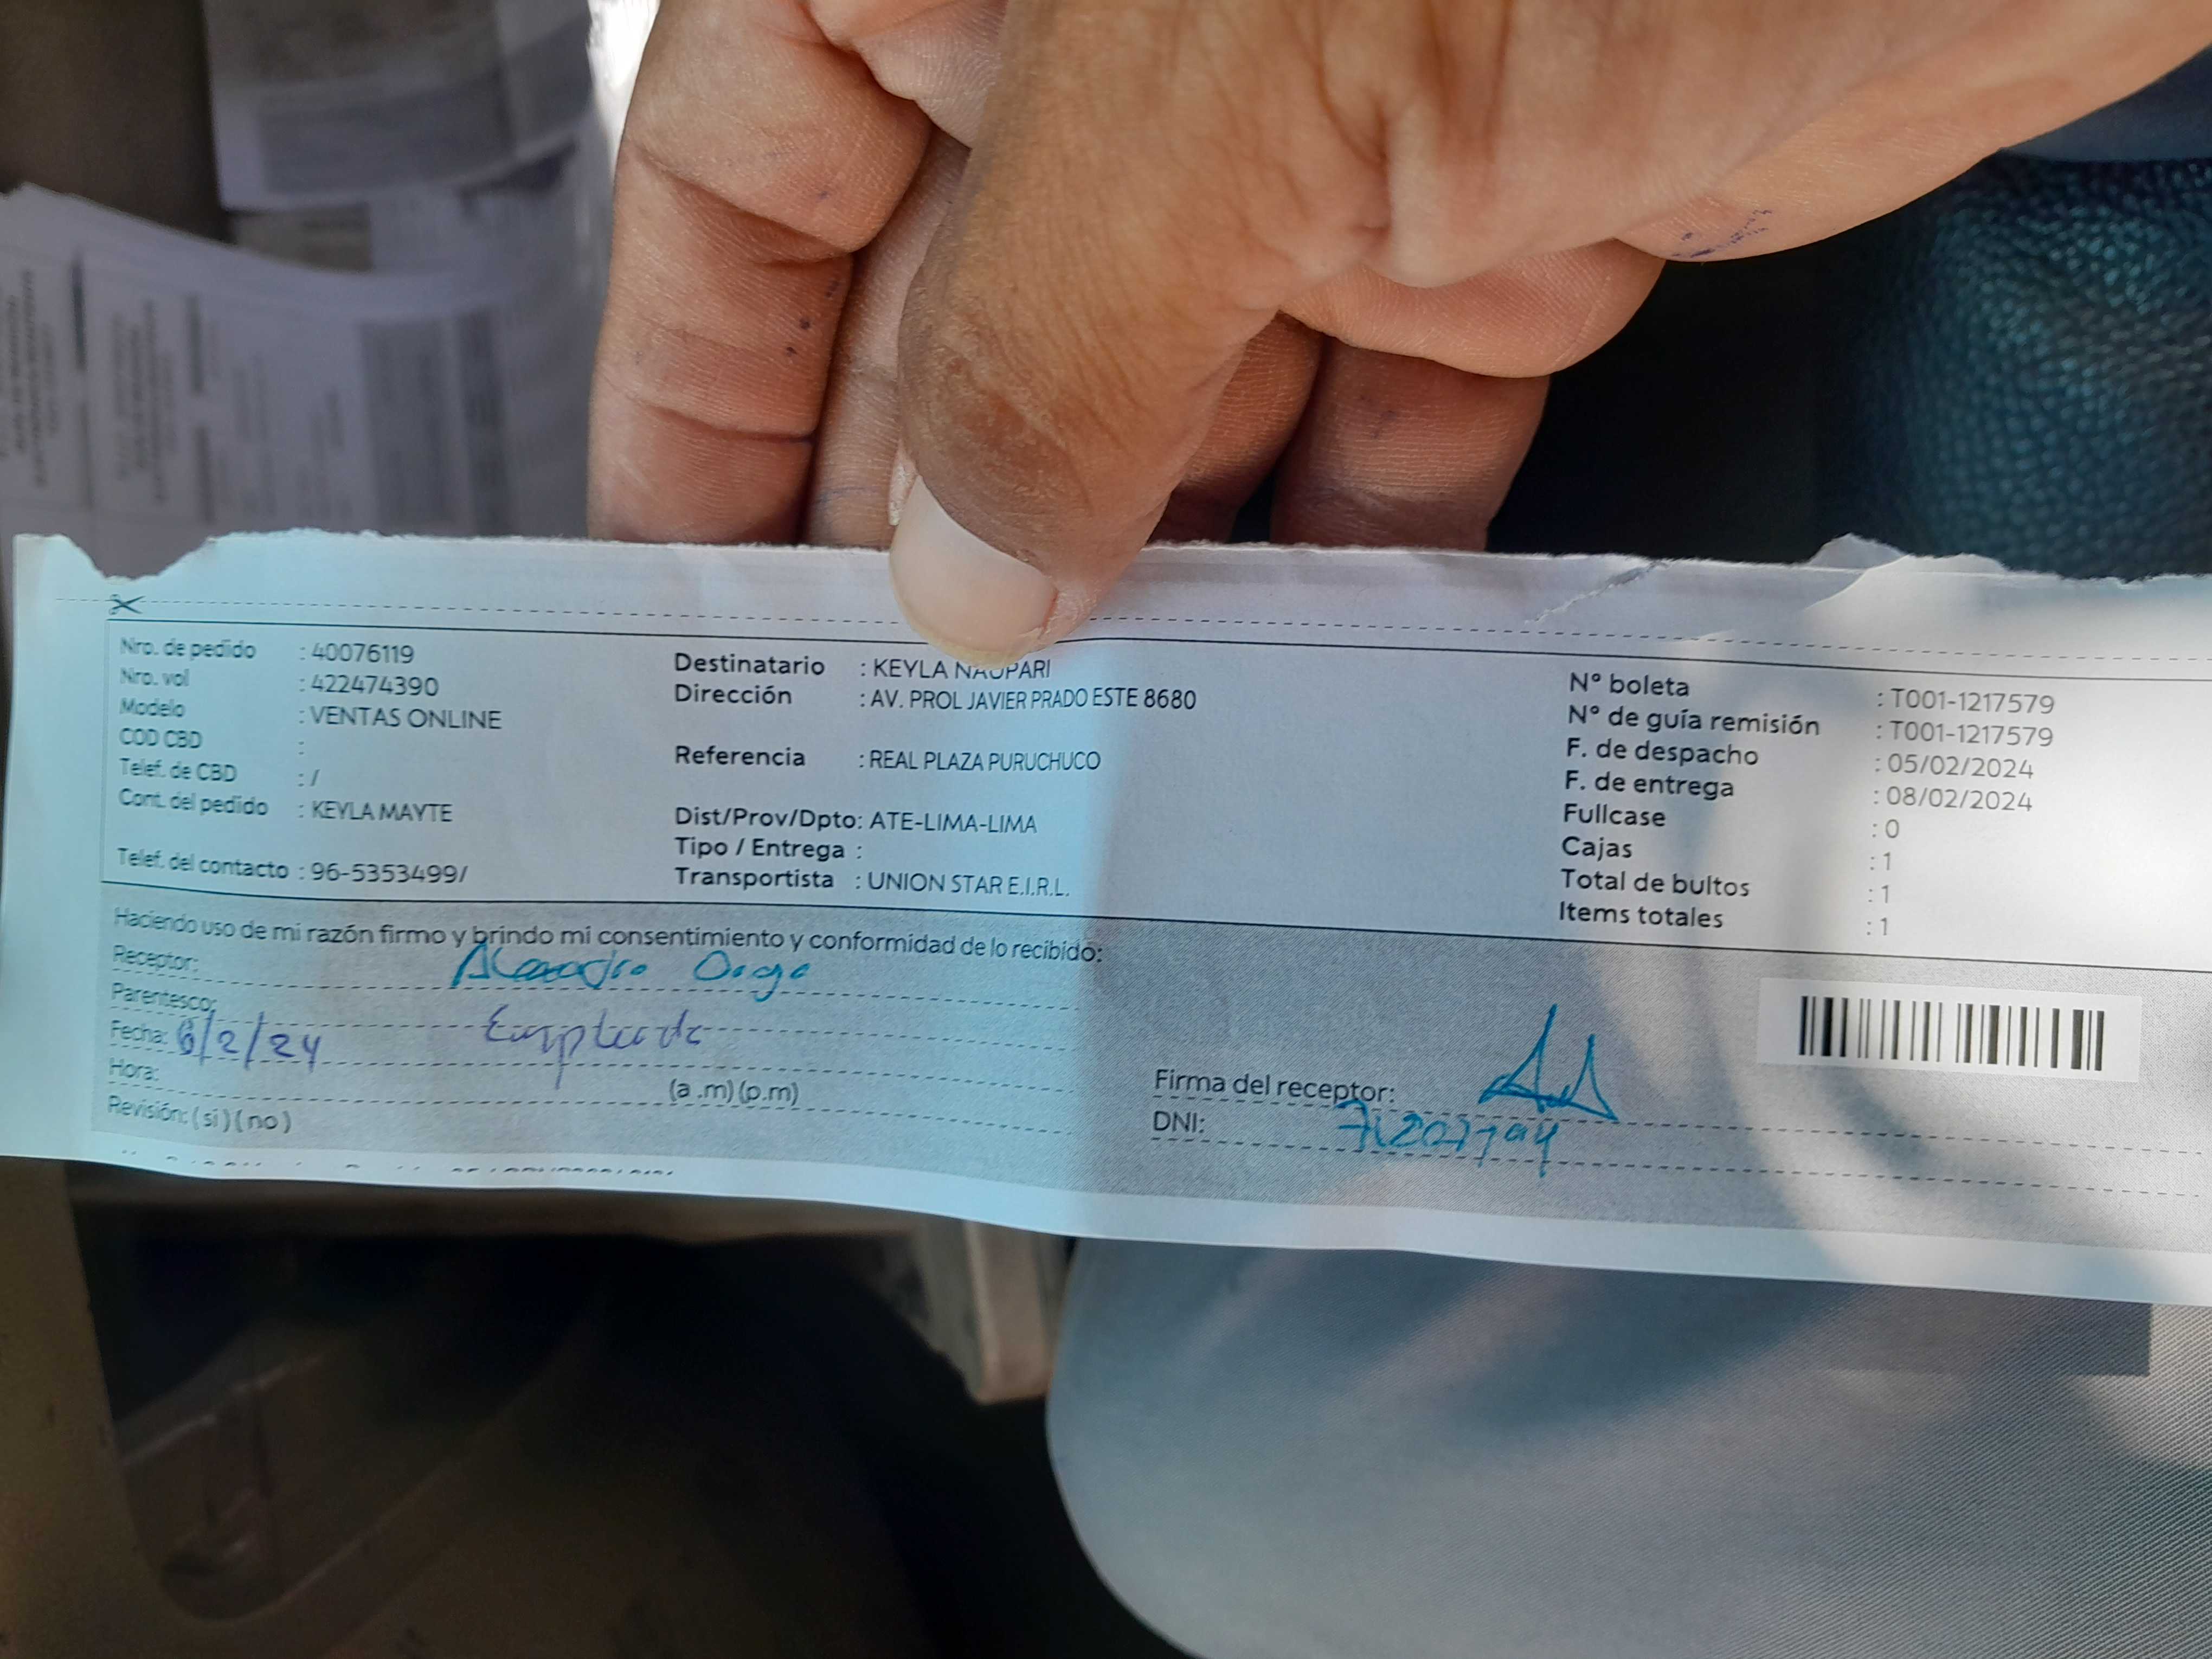 Nro. de pedido : 40076119
Nro. vol : 422474390
Modelo : VENTAS ONLINE
COD CBD :
Telef. de CBD : /
Cont. del pedido : KEYLA MAYTE
Telef. del contacto : 96-5353499/
Destinatario : KEYLA NAUPARI
Dirección : AV. PROL JAVIER PRADO ESTE 8680
Referencia : REAL PLAZA PURUCHUCO
Dist/Prov/Dpto: ATE-LIMA-LIMA
Tipo / Entrega :
Transportista : UNION STAR E.I.R.L.
N° boleta : T001-1217579
N° de guía remisión : T001-1217579
F. de despacho : 05/02/2024
F. de entrega : 08/02/2024
Fullcase : 0
Cajas : 1
Total de bultos : 1
Items totales : 1
Haciendo uso de mi razón firmo y brindo mi consentimiento y conformidad de lo recibido:
Receptor:
Parentesco:
Fecha: 6/2/24
Hora: (a .m) (p.m)
Revisión: ( si ) ( no )
Firma del receptor:
DNI: